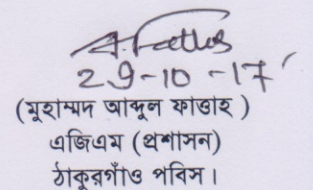 A. Fattos
29-10-17
(মুহাম্মদ আব্দুল ফাত্তাহ)
এজিএম (প্রশাসন)
ঠাকুরগাঁও পবিস।